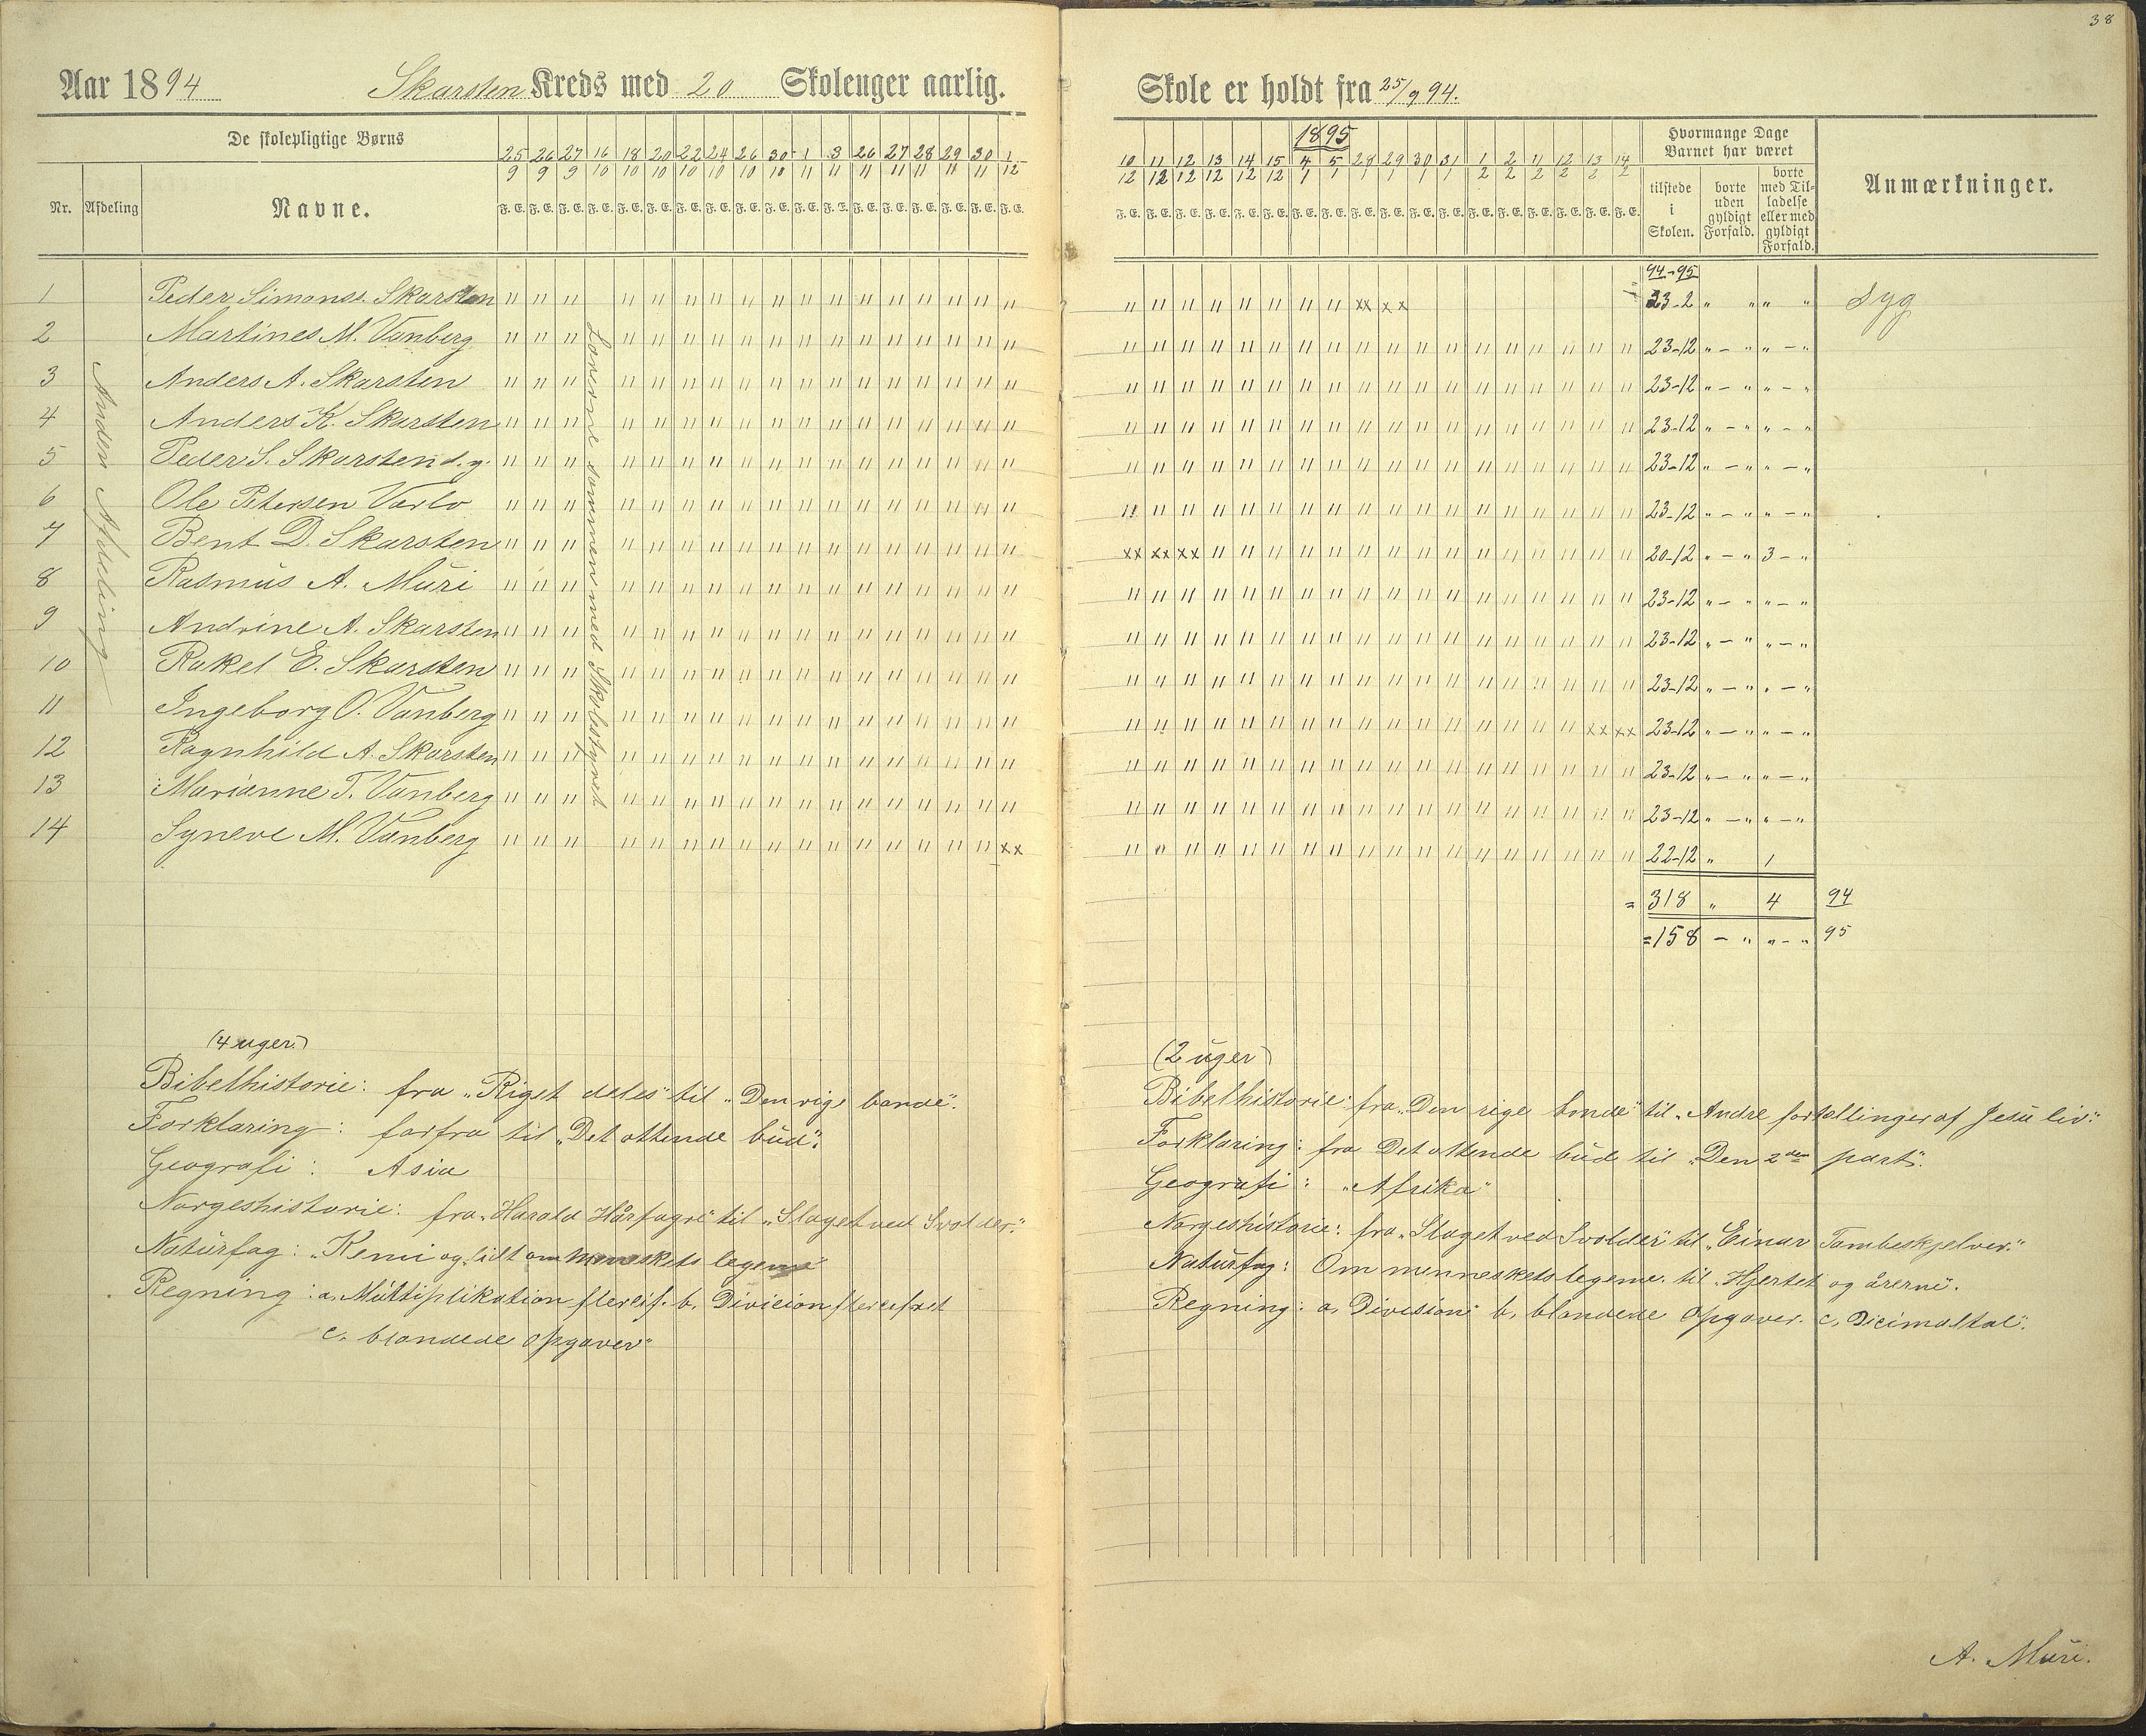 38
Aar 1894 Skarsten Kreds med 20 Skoleuger aarlig.
De skolepligtige Børns
Nr. Afdeling Navne.
25/9 26/9 27/9 16/10 18/10 20/10 22/10 24/10 26/10 30/10 1/11 3/11 26/11 27/11 28/11 29/11 30/11 1/12
F. E. F. E. F. E. F. E. F. E. F. E. F. E. F. E. F. E. F. E. F. E. F. E. F. E. F. E. F. E. F. E. F. E. F. E.
1 Peder Simonss. Skarsten
2 Martines M. Vanberg
3 Anders A. Skarsten
4 Anders K. Skarsten
5 Peder S. Skarsten d. y.
6 Ole Petersen Varlo
7 Bent D. Skarsten
8 Rasmus A. Muri
9 Andrine A. Skarsten
10 Rakel E. Skarsten
11 Ingeborg O. Vanberg
12 Ragnhild A. Skarsten
13 Marianne T. Vanberg
14 Syneve M. Vanberg xx
Anden Afdeling
sammen med Skolestyret
(4 uger.)
Bibelhistorie: fra „Riget deles" til „Den rige bonde".
Forklaring: forfra til „Det ottende bud".
Geografi: Asia
Norgeshistorie: fra „Harald Hårfagre" til „Slaget ved Svolder."
Naturfag: „Kemi og lidt om menneskets legeme"
Regning: a. Multiplikation flercif. b. Division flercifret
c. blandede opgaver"
Skole er holdt fra 25/9 94.
1895
10/12 11/12 12/12 13/12 14/12 15/12 4/1 5/1 28/1 29/1 30/1 31/1 1/2 2/2 11/2 12/2 13/2 14/2
F. E. F. E. F. E. F. E. F. E. F. E. F. E. F. E. F. E. F. E. F. E. F. E. F. E. F. E. F. E. F. E. F. E. F. E.
Hvormange Dage Barnet har været
tilstede i Skolen.
borte uden gyldigt Forfald.
borte med Tilladelse eller med gyldigt Forfald.
Anmærkninger.
94-95
xx xx 23-2 " " " " Syg
23-12 " - " " - "
23-12 " - " " - "
23-12 " - " " - "
23-12 " - " " - "
23-12 " - " " - "
xx xx xx 20-12 " - " 3 - "
23-12 " - " " - "
23-12 " - " " - "
23-12 " - " " - "
xx xx 23-12 " - " " - "
23-12 " - " " - "
23-12 " - " " - "
22-12 " 1
= 318 " 4 94
= 158 - " " - " 95
(2 uger)
Bibelhistorie: fra „Den rige bonde" til „Andre fortællinger af Jesu liv."
Forklaring: fra Det ottende bud til „Den 2den part".
Geografi: „Afrika"
Norgeshistorie: fra „Slaget ved Svolder" til „Einar Tambeskjelver."
Naturfag: Om menneskets legeme. til „Hjertet og årerne".
Regning: a, Division b, blandede opgaver. c, Dicimaltal".
A. Muri.